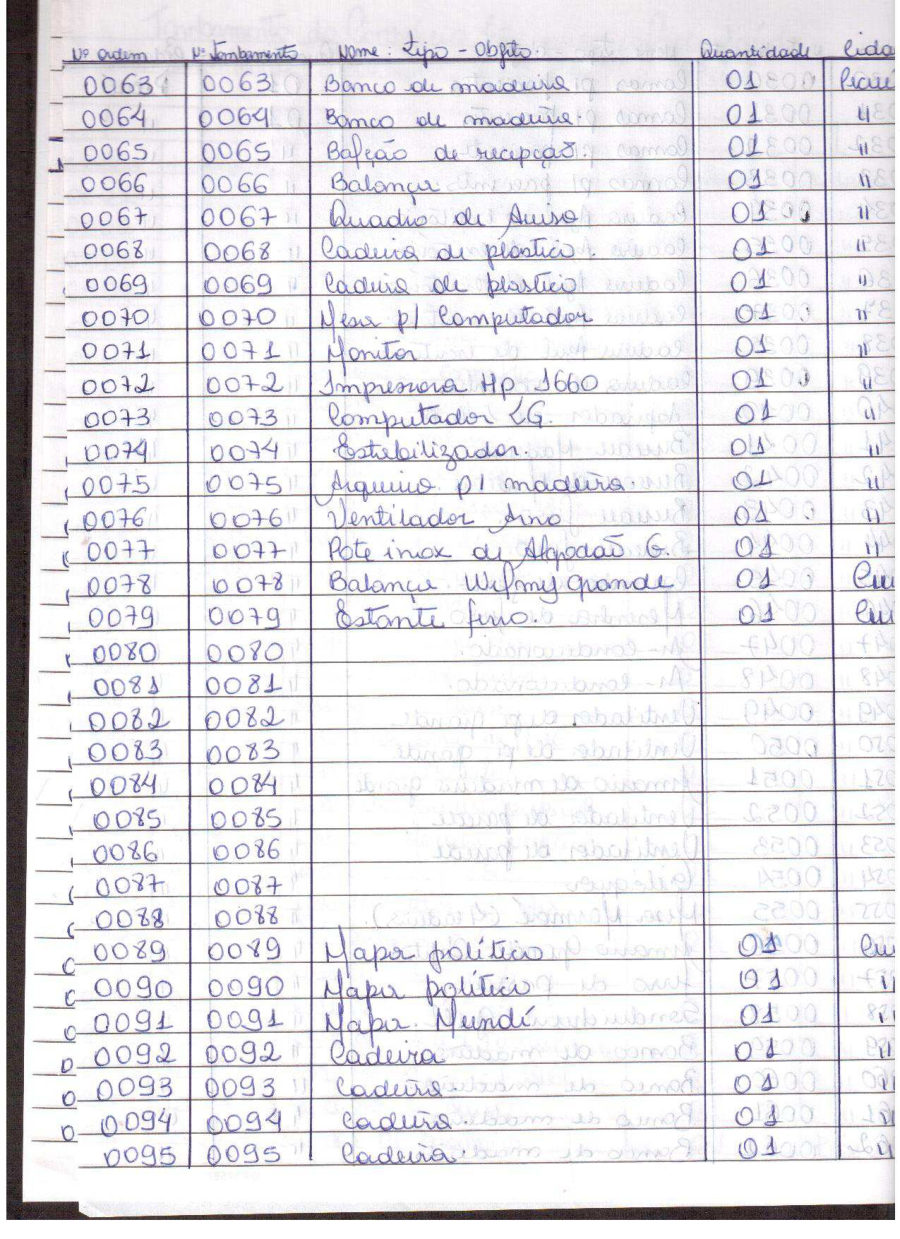 Nº ordem Nº Tombamento Nome: tipo - objeto Quantidade Cida
0063 0063 Banco de madeira 01
0064 0064 Banco de madeira. 01 "
0065 0065 Balcão de recepção. 01 "
0066 0066 Balança 01 "
0067 0067 Quadro de Aviso 01 "
0068 0068 Cadeira de plastico. 01 "
0069 0069 Cadeira de plastico 01 "
0070 0070 Mesa p/ Computador 01 "
0071 0071 Monitor 01 "
0072 0072 Impressora Hp 1660 01 "
0073 0073 Computador LG. 01 "
0074 0074 Estabilizador. 01 "
0075 0075 Arquivo p/ madeira. 01 "
0076 0076 Ventilador Arno 01 "
0077 0077 Pote inox de Algodão G. 01 "
0078 0078 Balança Welmy grande 01
0079 0079 Estante ferro. 01
0080 0080
0081 0081
0082 0082
0083 0083
0084 0084
0085 0085
0086 0086
0087 0087
0088 0088
0089 0089 Mapa político 01
0090 0090 Mapa político 01 "
0091 0091 Mapa Mundí 01 "
0092 0092 Cadeira 01 "
0093 0093 Cadeira 01 "
0094 0094 Cadeira. 01 "
0095 0095 Cadeira. 01 "